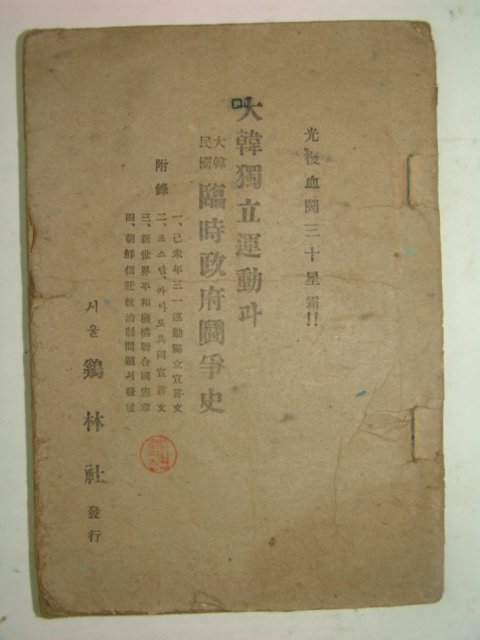 光復血鬪三十星霜!!
大韓獨立運動과
大韓
民國
臨時政府鬪爭史
附錄
一、己未年三一運動獨立宣言文
二、포스탐、카이로共同宣言文
三、新世界平和機構聯合國憲章
四、朝鮮信託統治制問題의發展
서울 鷄林社 發行